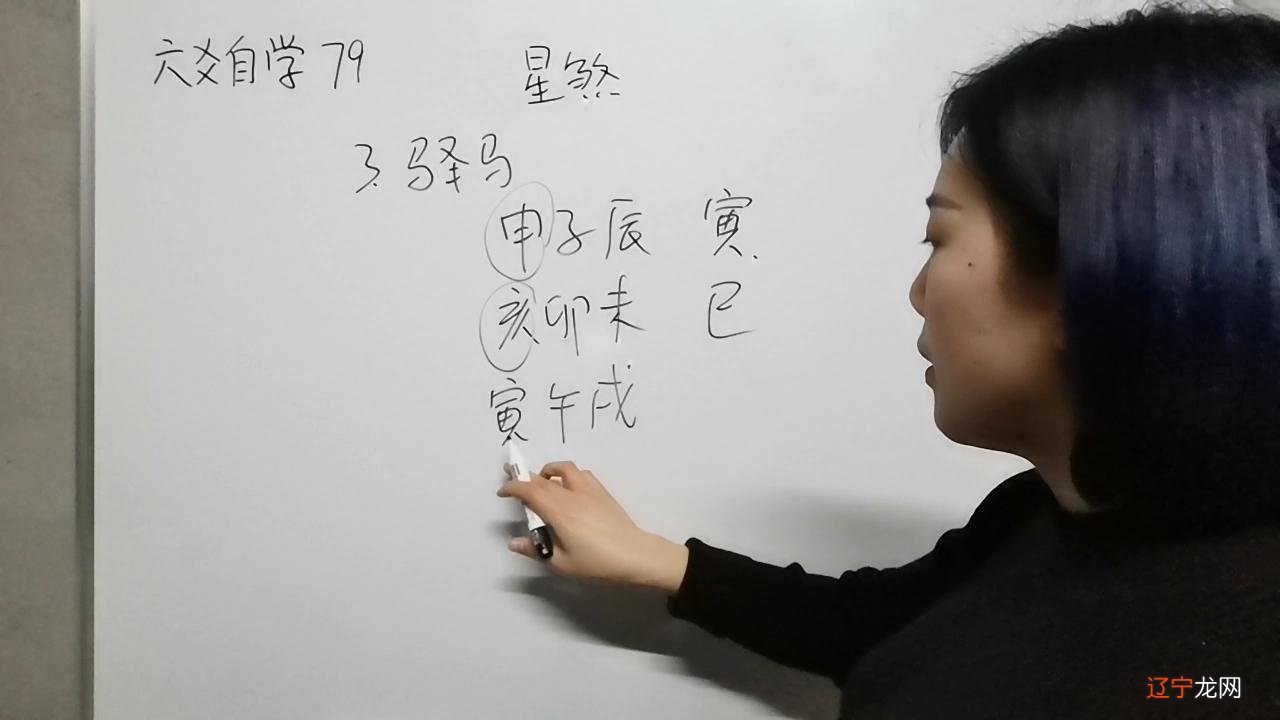 六爻自学 79 星煞
3. 驿马
申子辰 寅.
亥卯未 巳
寅午戌
辽宁龙网